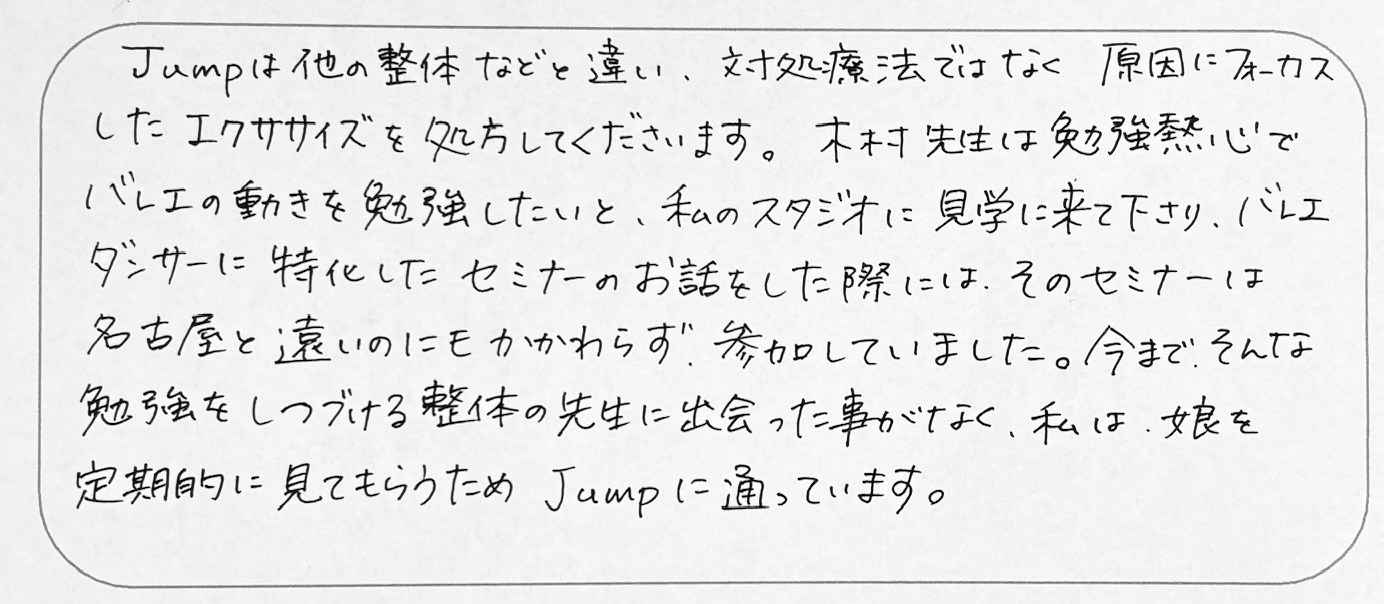 Jumpは他の整体などと違い、対処療法ではなく 原因にフォーカス
したエクササイズを処方してくださいます。木村先生は勉強熱心で
バレエの動きを勉強したいと、私のスタジオに見学に来て下さり、バレエ
ダンサーに特化したセミナーのお話をした際には、そのセミナーは
名古屋と遠いのにもかかわらず、参加していました。今まで、そんな
勉強をしつづける整体の先生に出会った事がなく、私は、娘を
定期的に見てもらうためJumpに通っています。